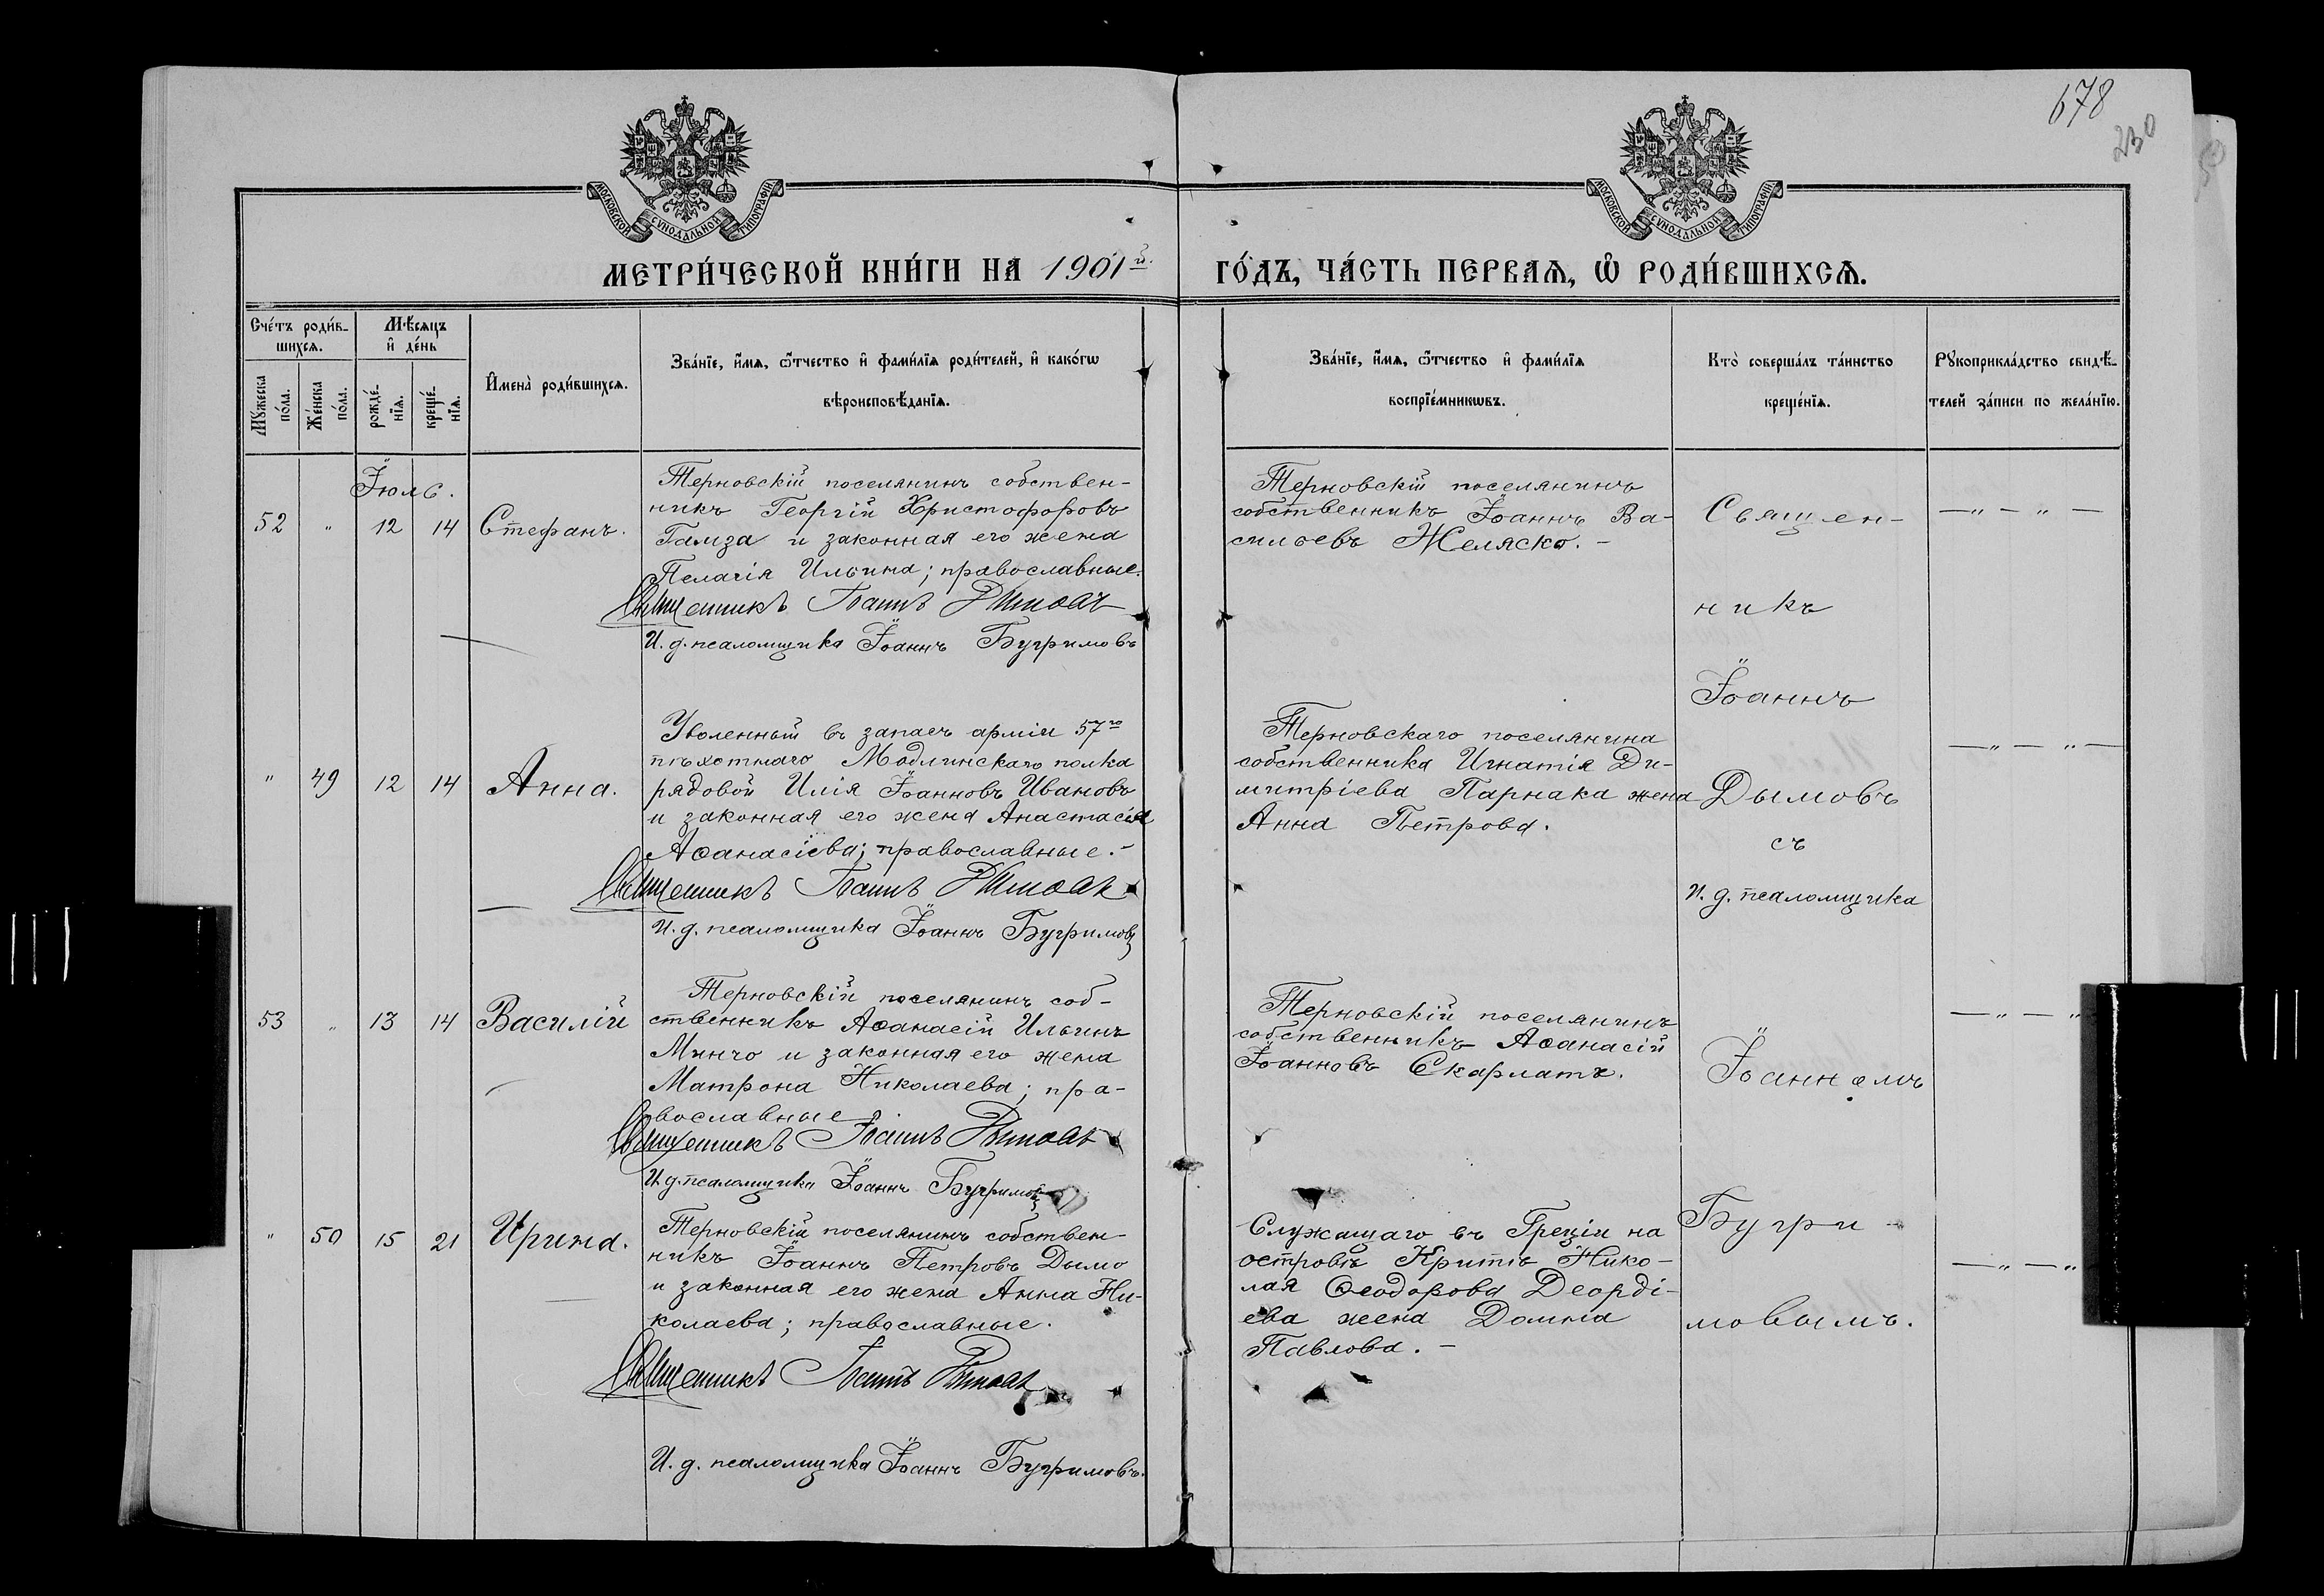 678
230
МОСКОВСКОЙ СУНОДАЛЬНОЙ ТИПОГРАФІИ
МОСКОВСКОЙ СУНОДАЛЬНОЙ ТИПОГРАФІИ
МЕТРИ́ЧЕСКОЙ КНИ́ГИ НА 1901й. ГО́ДЪ, ЧА́СТЬ ПЕРВАѦ, Ѡ҆ РОДИ́ВШИХСѦ.
Сче́тъ роди́в-
шихсѧ.
Мꙋ́жеска по́ла.
Же́нска по́ла.
Мѣ́сѧцъ
и҆ де́нь
рожде́-
нїѧ.
креще́-
нїѧ.
И҆мена̀ роди́вшихсѧ.
Зва́нїе, и҆́мѧ, ѻ҆́тчество и҆ фами́лїѧ роди́телей, и҆ како́гѡ
вѣроисповѣ́данїѧ.
Зва́нїе, и҆́мѧ, ѻ҆́тчество и҆ фами́лїѧ
воспрїе́мникѡвъ.
Кто̀ соверша́лъ та́инство
креще́нїѧ.
Рꙋкоприкла́дство свидѣ́-
телей за́писи по жела́нїю.
Іюль.
52 " 12 14 Стефанъ.
Терновскій поселянинъ собствен-
никъ Георгій Христофоровъ
Гамза и законная его жена
Пелагія Ильина; православные.
Священникъ Іоаннъ Дымовъ
И. д. псаломщика Іоаннъ Бугримовъ
Терновскій поселянинъ
собственникъ Іоаннъ Ва-
сильевъ Желяско. -
— " — " —
" 49 12 14 Анна.
Уволенный въ запасъ арміи 57го
пѣхотнаго Модлинскаго полка
рядовой Илія Іоанновъ Ивановъ
и законная его жена Анастасія
Аѳанасіева; православные. -
Священникъ Іоаннъ Дымовъ
И. д. псаломщика Іоаннъ Бугримовъ
Терновскаго поселянина
собственника Игнатія Ди-
митріева Парнака жена
Анна Петрова.
— " — " —
53 " 13 14 Василій
Терновскій поселянинъ соб-
ственникъ Аѳанасій Ильинъ
Минчо и законная его жена
Матрона Николаева; пра-
вославные
Священникъ Іоаннъ Дымовъ
И. д. псаломщика Іоаннъ Бугримовъ
Терновскій поселянинъ
собственникъ Аѳанасій
Іоанновъ Скарлатъ.
— " — "
" 50 15 21 Ирина.
Терновскій поселянинъ собствен-
никъ Іоаннъ Петровъ Дымо
и законная его жена Анна Ни-
колаева; православные.
Священникъ Іоаннъ Дымовъ
И. д. псаломщика Іоаннъ Бугримовъ.
Служащаго въ Греціи на
островѣ Критѣ Нико-
лая Ѳеодорова Деорді-
ева жена Домна
Павлова. -
— " — "
Священ-
никъ
Іоаннъ
Дымовъ
съ
и. д. псаломщика
Іоанномъ
Бугри-
мовымъ.